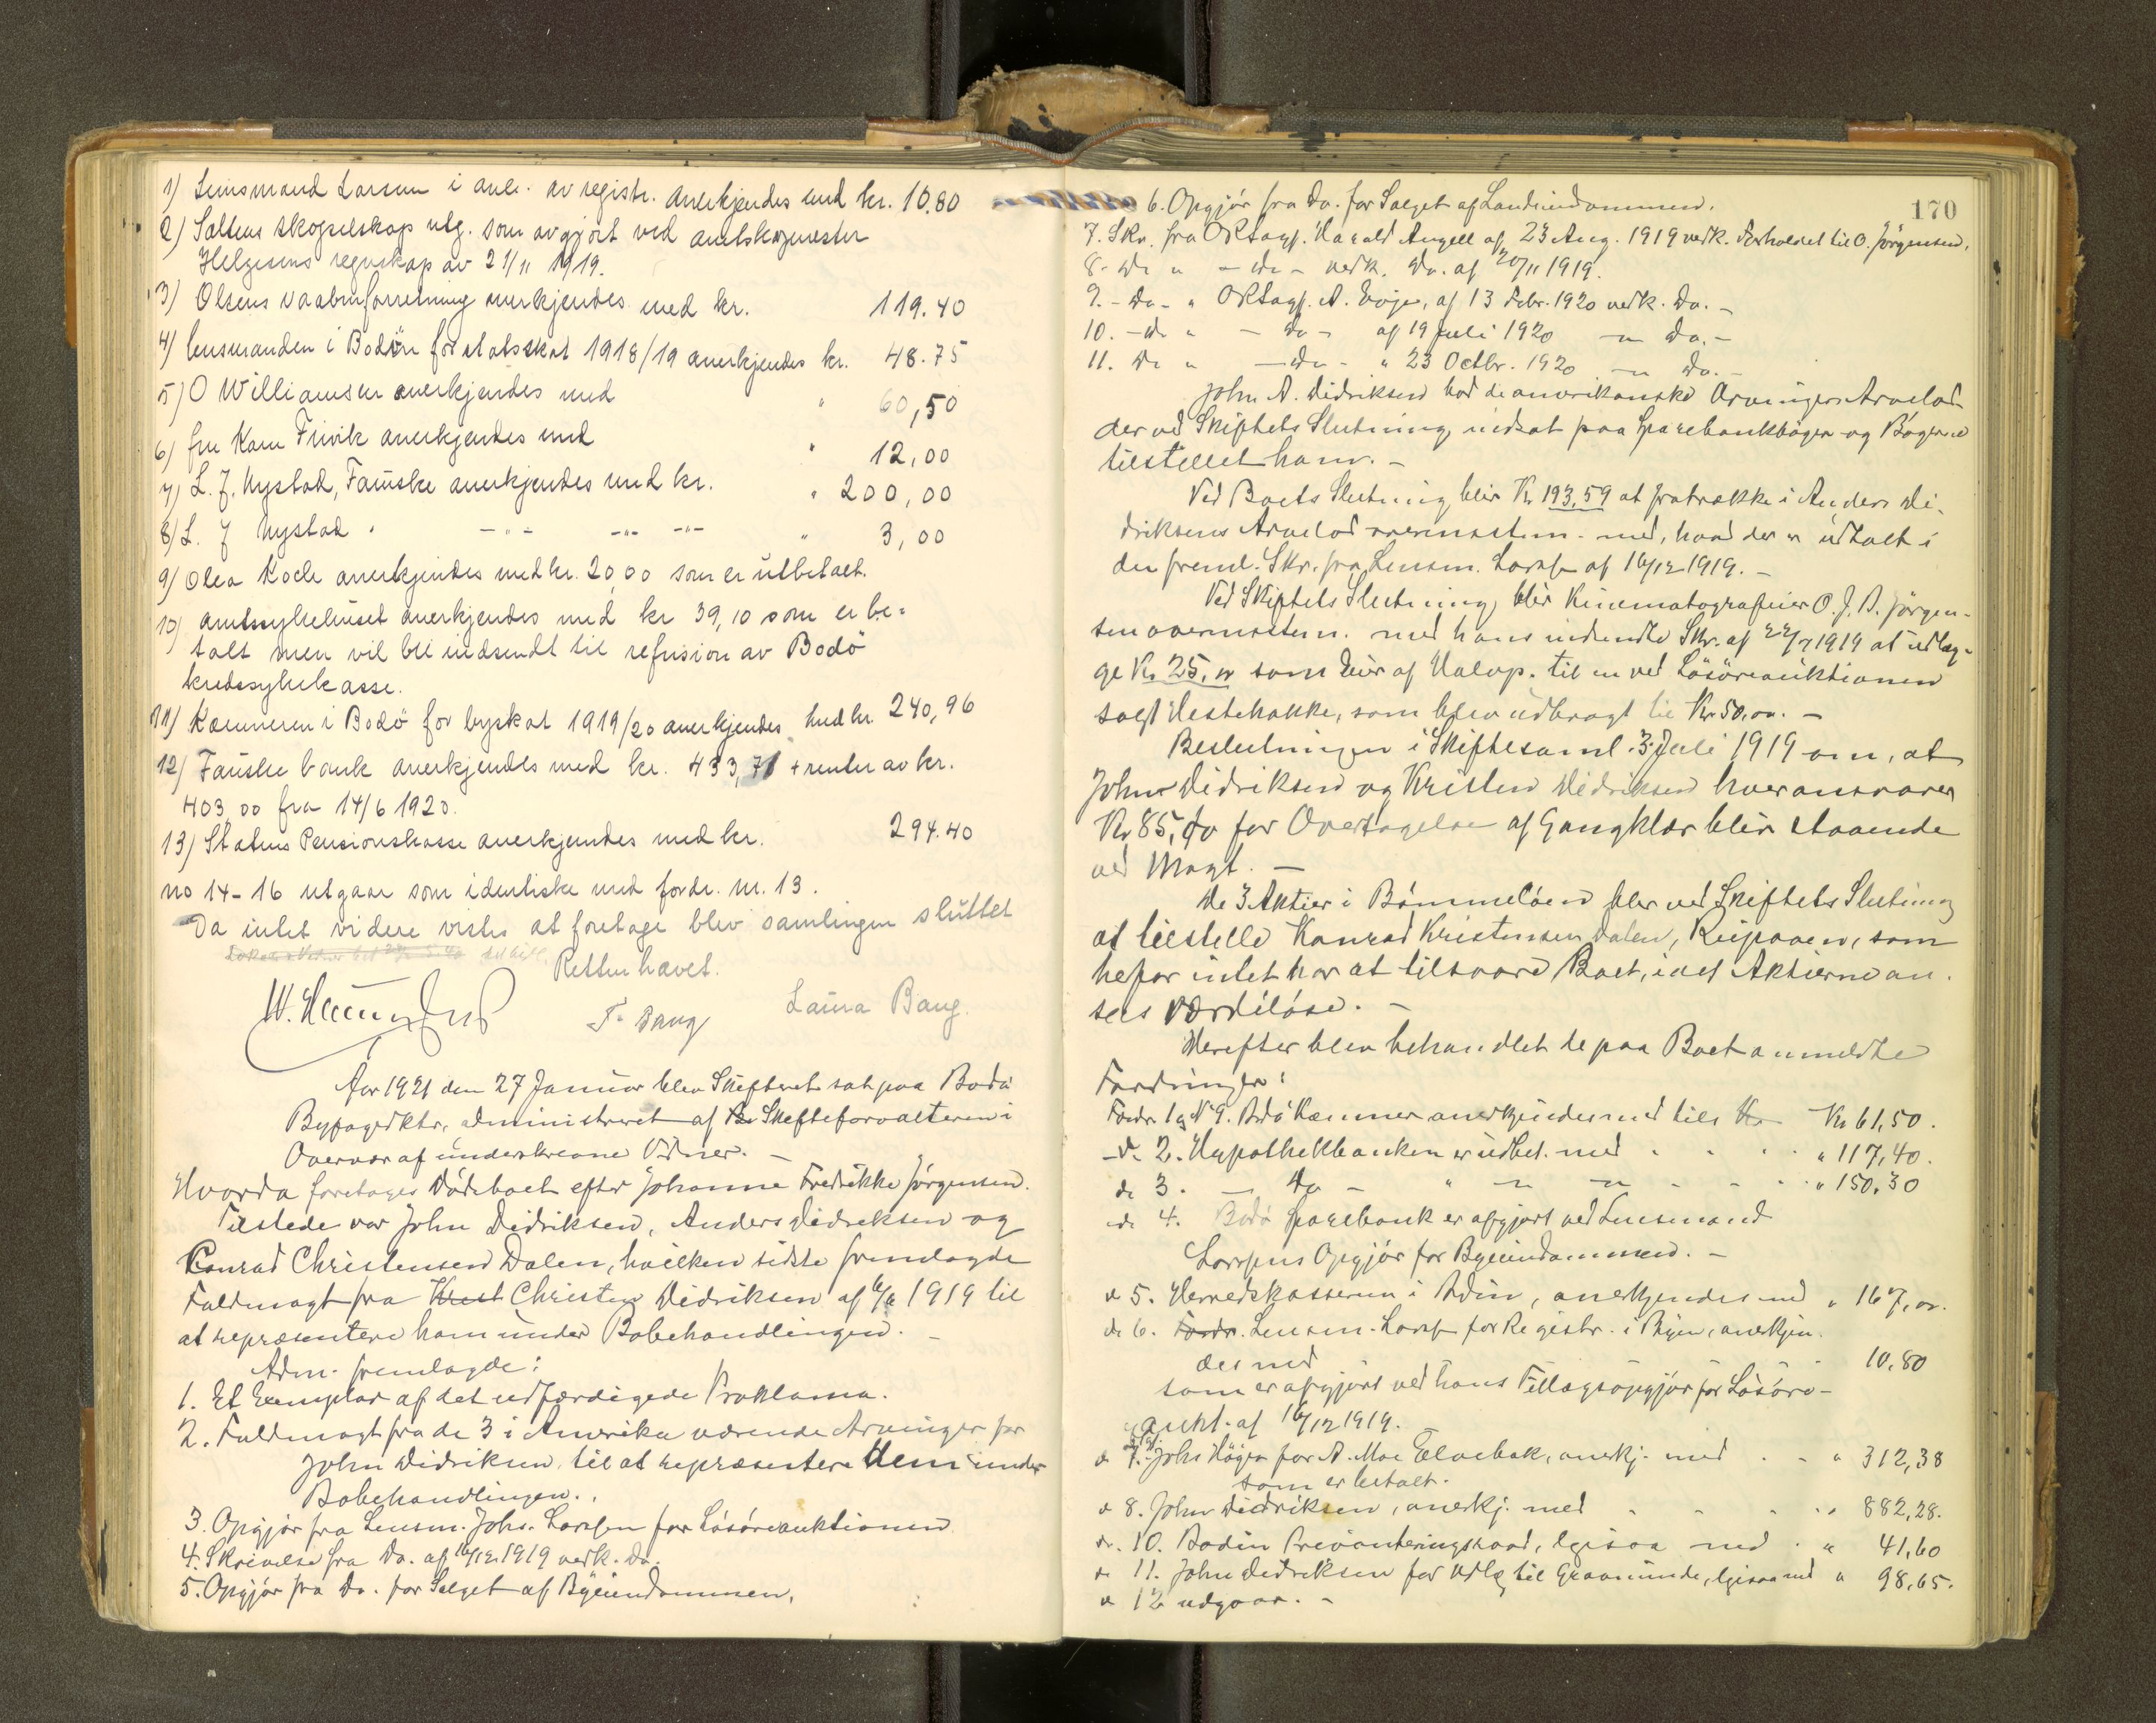 1) Lensmand Larsen i anl. av registr. anerkjendes med kr. 10.80
2) Saltens skogselskap utg. som avgjort ved amtskogmester
Helgesens regnskap av 21/11 1919.
3) Olsens vaabenforretning anerkjendes med kr. 119.40
4) lensmanden i Bodin for statsskat 1918/19 anerkjendes kr. 48.75
5) O Williamsen anerkjendes med " 60,50
6) fru Kam anerkjendes med " 12,00
7) L. J. Nystad, Fauske anerkjendes med kr. " 200,00
8) L. J Nystad " -"- -"- -"- " 3,00
9) Olea Koch anerkjendes med kr. 20,00 som er utbetalt.
10) amtssykehuset anerkjendes med kr 39,10 som er be-
talt men vil bli indsendt til refusion av Bodö
kredssykekasse.
11) Kæmneren i Bodö for byskat 1919/20 anerkjendes med kr 240,96
12) Fauske bank anerkjendes med kr. 433,71 + renter av kr.
403,00 fra 14/6 1920.
13) Statens Pensionskasse anerkjendes med kr. 294.40
no 14-16 utgaar som identiske med fordr. nr. 13.
Da intet videre vistes at foretage blev samlingen sluttet
Retten hævet.
F. Bang Laura Bang.
Aar 1921 den 27 Januar blev Skifteret sat paa Bodö
Byfogedktr, administreret af Skifteforvalteren i
Overvær af underskrevne Vidner. -
Hvorda foretoges Dödsboet efter Johanne Fredrikke Jörgensen.
Tilstede var John Didriksen, Anders Didriksen og
Conrad Christensen Dalen, hvilken sidste fremlagde
Fuldmagt fra Krist Christen Didriksen af 6/6 1919 til
at repræsentere ham under Bobehandlingen. -
Adm. fremlagde:
1. Et Exemplar af det udfærdigede Proklama.
2. Fuldmagt fra de 3 i Amerika værende Arvinger for
John Didriksen til at repræsentere dem under
Bobehandlingen.
3. Opgjör fra Lensm. Johs. Larssen for Lösöreauktionen
4. Skrivelse fra Do. af 16/12 1919 vedk. Do.
5. Opgjör fra Do. for Salget af Byeiendommen.
170
6. Opgjör fra Do. for Salget af Landeiendommen.
7. Skr. fra ORSagf. Harald Angell af 23 Aug. 1919 vedk. Forholdet til O. Jörgensen.
8- do " - do - vedk. Do. af 20/11 1919.
9. - Do - " ORSagf. A. Evje, af 13 Febr. 1920 vedk. Do. -
10. - do " - do - af 19 Juli 1920 - " - Do. -
11. Do " - do - " 23 Octbr. 1920 - " - Do. -
John A. Didriksen bad de amerikanske Arvingers Arvelod
der ved Skiftets Slutning indsat paa Sparebankböger og Bögerne
tilstillet ham. -
Ved Boets Slutning blir Kr 193,59 at fratrække i Anders Di-
driksens Arvelod overensstem. med, hvad der er udtalt i
den freml. Skr. fra Lensm. Larss. af 16/12 1919. -
Ved Skiftets Slutning blir Kinematografeier O. J. A. Jörgen-
sen overensstem. med hans indsendte Skr. af 22/7 1919 at udlæg-
ge Kr 25,00 som Eier af Halvp. til en ved Lösöreauktionen
solgt Hestehakke, som blev udbragt til Kr 50,00. -
Beslutningen i Skiftesaml. 3. Juli 1919 om, at
John Didriksen og Kristen Didriksen hver ansvarer
Kr 85,00 for Overtagelse af Gangklær blir staaende
ved Magt. -
De 3 Aktier i Bömmelöen blir ved Skiftets Slutning
at tilstille Konrad Kristensen Dalen, som
hefor intet har at tilsvare Boet, idet Aktierne an-
sees værdilöse. -
Herefter blev behandlet de paa Boet anmeldte
Fordringer:
Fordr. 1 og No 9. Bodö Kæmner anerkjendes med tils. Kr Kr 61,50.
- do 2. Hypothekbanken er udbet. med . . . " 117,40.
do 3. - Do - " - " - " - . . " 150,30
do 4. Bodö Sparebank er afgjort ved Lensmand
Larssens Opgjör for Byeiendommen. -
do 5. Herredskassereren i Bodin, anerkjendes med " 167,00.
do 6. Fordr. Lensm. Larss. for Registr. i Byen, anerkjen-
des med 10,80
som er afgjort ved hans Tillægsopgjör for Lösöre-
aukt. af 16/12 1919.
do 7. Johs Höyer for A. Moe Elvebak, anerkj. med . . " 312,38
som er betalt.
do 8. John Didriksen, anerkj. med . . . " 882,28.
do 10. Bodin Provianteringsraad, ligesaa med . " 41,60
do 11. John Didriksen for Udlæg til Gravminde, ligesaa med " 98,65.
do 12 udgaar. -